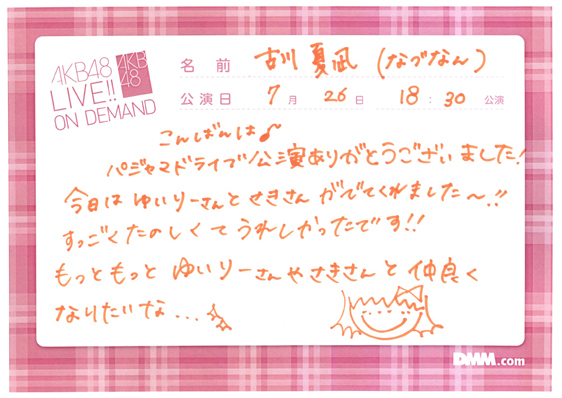 AKB48
LIVE!!
ON DEMAND
AKB
48
名 前 古川 夏凪 (なづなん)
公演日 7 月 26 日 18 : 30 公演
こんばんは♪
パジャマドライブ公演ありがとうございました!
今日は ゆいりーさんと せきさん がでてくれました〜!!
すっごくたのしくて うれしかったです!!
もっともっと ゆいりーさんや さきさんと 仲良く
なりたいな...
DMM.com